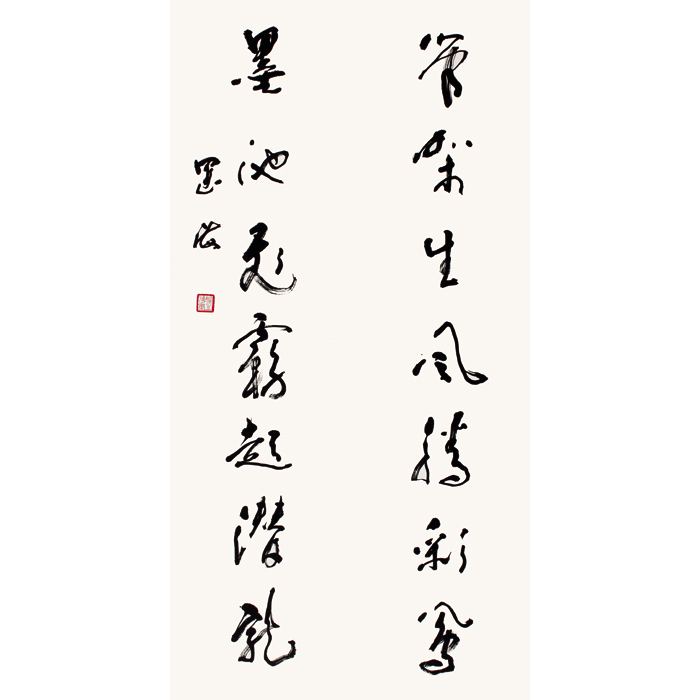 筆架生風騰彩鳳
墨池飛霧起潛龍